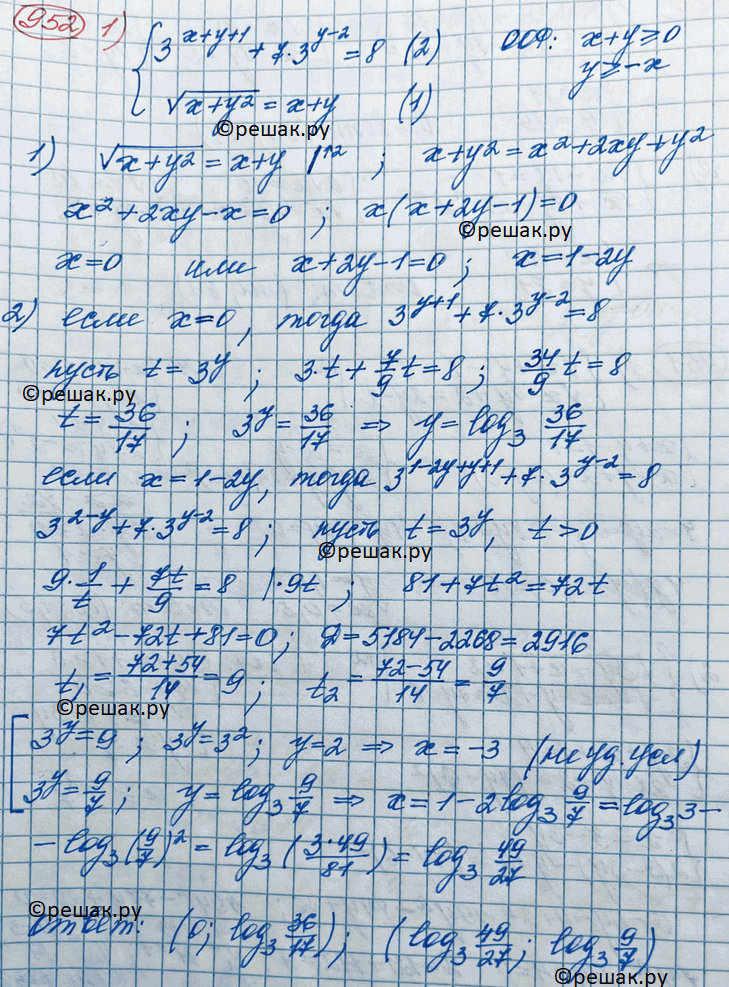 952 1) { 3^{x+y+1} + 7·3^{y-2} = 8 (2) ООФ: x+y≥0
y≥-x
√(x+y²) = x+y (1)
©решак.ру
1) √(x+y²) = x+y |↑2 ; x+y² = x²+2xy+y²
x²+2xy-x=0 ; x(x+2y-1)=0
©решак.ру
x=0 или x+2y-1=0 ; x=1-2y
2) если x=0, тогда 3^{y+1}+7·3^{y-2}=8
пусть t=3^y ; 3·t+7/9 t=8 ; 34/9 t=8
©решак.ру
t=36/17 ; 3^y=36/17 ⇒ y=log₃ 36/17
если x=1-2y, тогда 3^{1-2y+y+1}+7·3^{y-2}=8
3^{2-y}+7·3^{y-2}=8 ; пусть t=3^y, t>0
©решак.ру
9·1/t + 7t/9 = 8 |·9t ; 81+7t²=72t
7t²-72t+81=0 ; D=5184-2268=2916
t₁=(72+54)/14=9 ; t₂=(72-54)/14=9/7
©решак.ру
[ 3^y=9 ; 3^y=3² ; y=2 ⇒ x=-3 (не уд. усл)
3^y=9/7 ; y=log₃ 9/7 ⇒ x=1-2log₃ 9/7=log₃3-
-log₃(9/7)²=log₃(3·49/81)=log₃ 49/27
©решак.ру
Ответ: (0; log₃ 36/17); (log₃ 49/27; log₃ 9/7)
©решак.ру